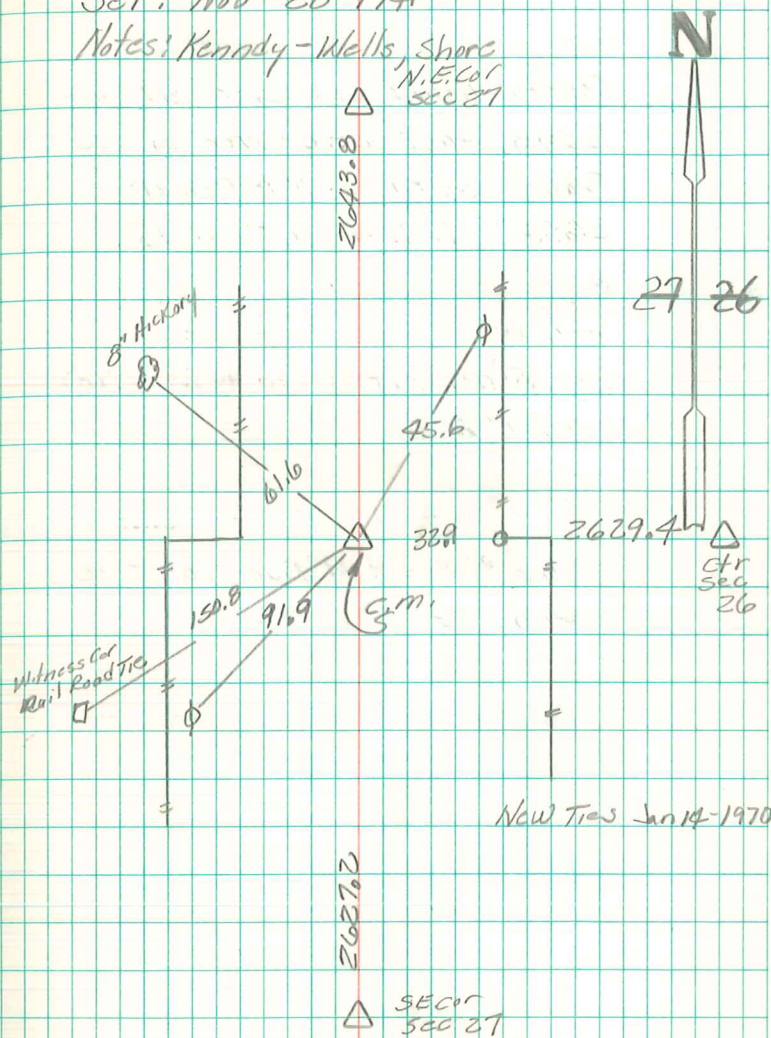 Notes: Kenndy-Wells, Shore
N
N.E.Cor
Sec 27
2643.8
27 26
8" Hickory
45.6
61.6
32.9
2629.4
Ctr
Sec
26
C.M.
150.8
91.9
Witness Cor
Rail Road Tie
New Ties Jan 14-1970
2627.2
SE Cor
Sec 27